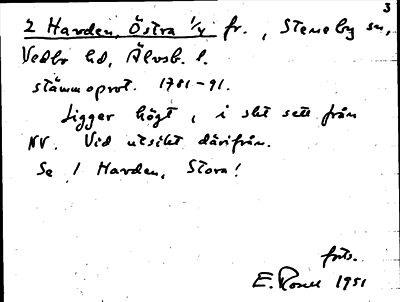 3
2 Harden, Östra 1/4 fr., Steneby sn,
Vedbo hd, Älvsb. l.
stämmoprot. 1781-91.
Ligger högt, i slätt sett från
NV. Vid utsikt därifrån.
Se 1 Harden, Stora!
forts.
E. Rosell 1951